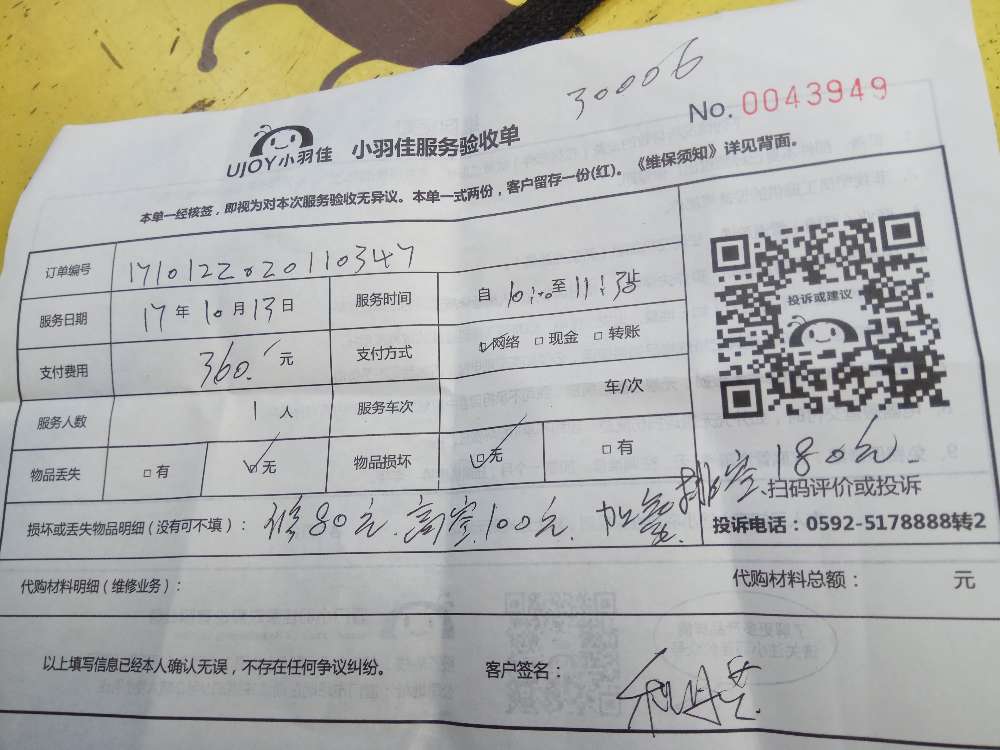 30006
No. 0043949
UJOY小羽佳 小羽佳服务验收单
本单一经核签，即视为对本次服务验收无异议。本单一式两份，客户留存一份(红)。《维保须知》详见背面。
订单编号 171012220110347
服务日期 17年10月13日 服务时间 自10:00至11:35止
支付费用 360.元 支付方式 ☑网络 □现金 □转账
服务人数 1人 服务车次 车/次
物品丢失 □有 ☑无 物品损坏 ☑无 □有
投诉或建议
损坏或丢失物品明细（没有可不填）： 修80元.高空100元.加氟.排空180元.
扫码评价或投诉
投诉电话：0592-5178888转2
代购材料明细（维修业务）： 代购材料总额： 元
以上填写信息已经本人确认无误，不存在任何争议纠纷。 客户签名：